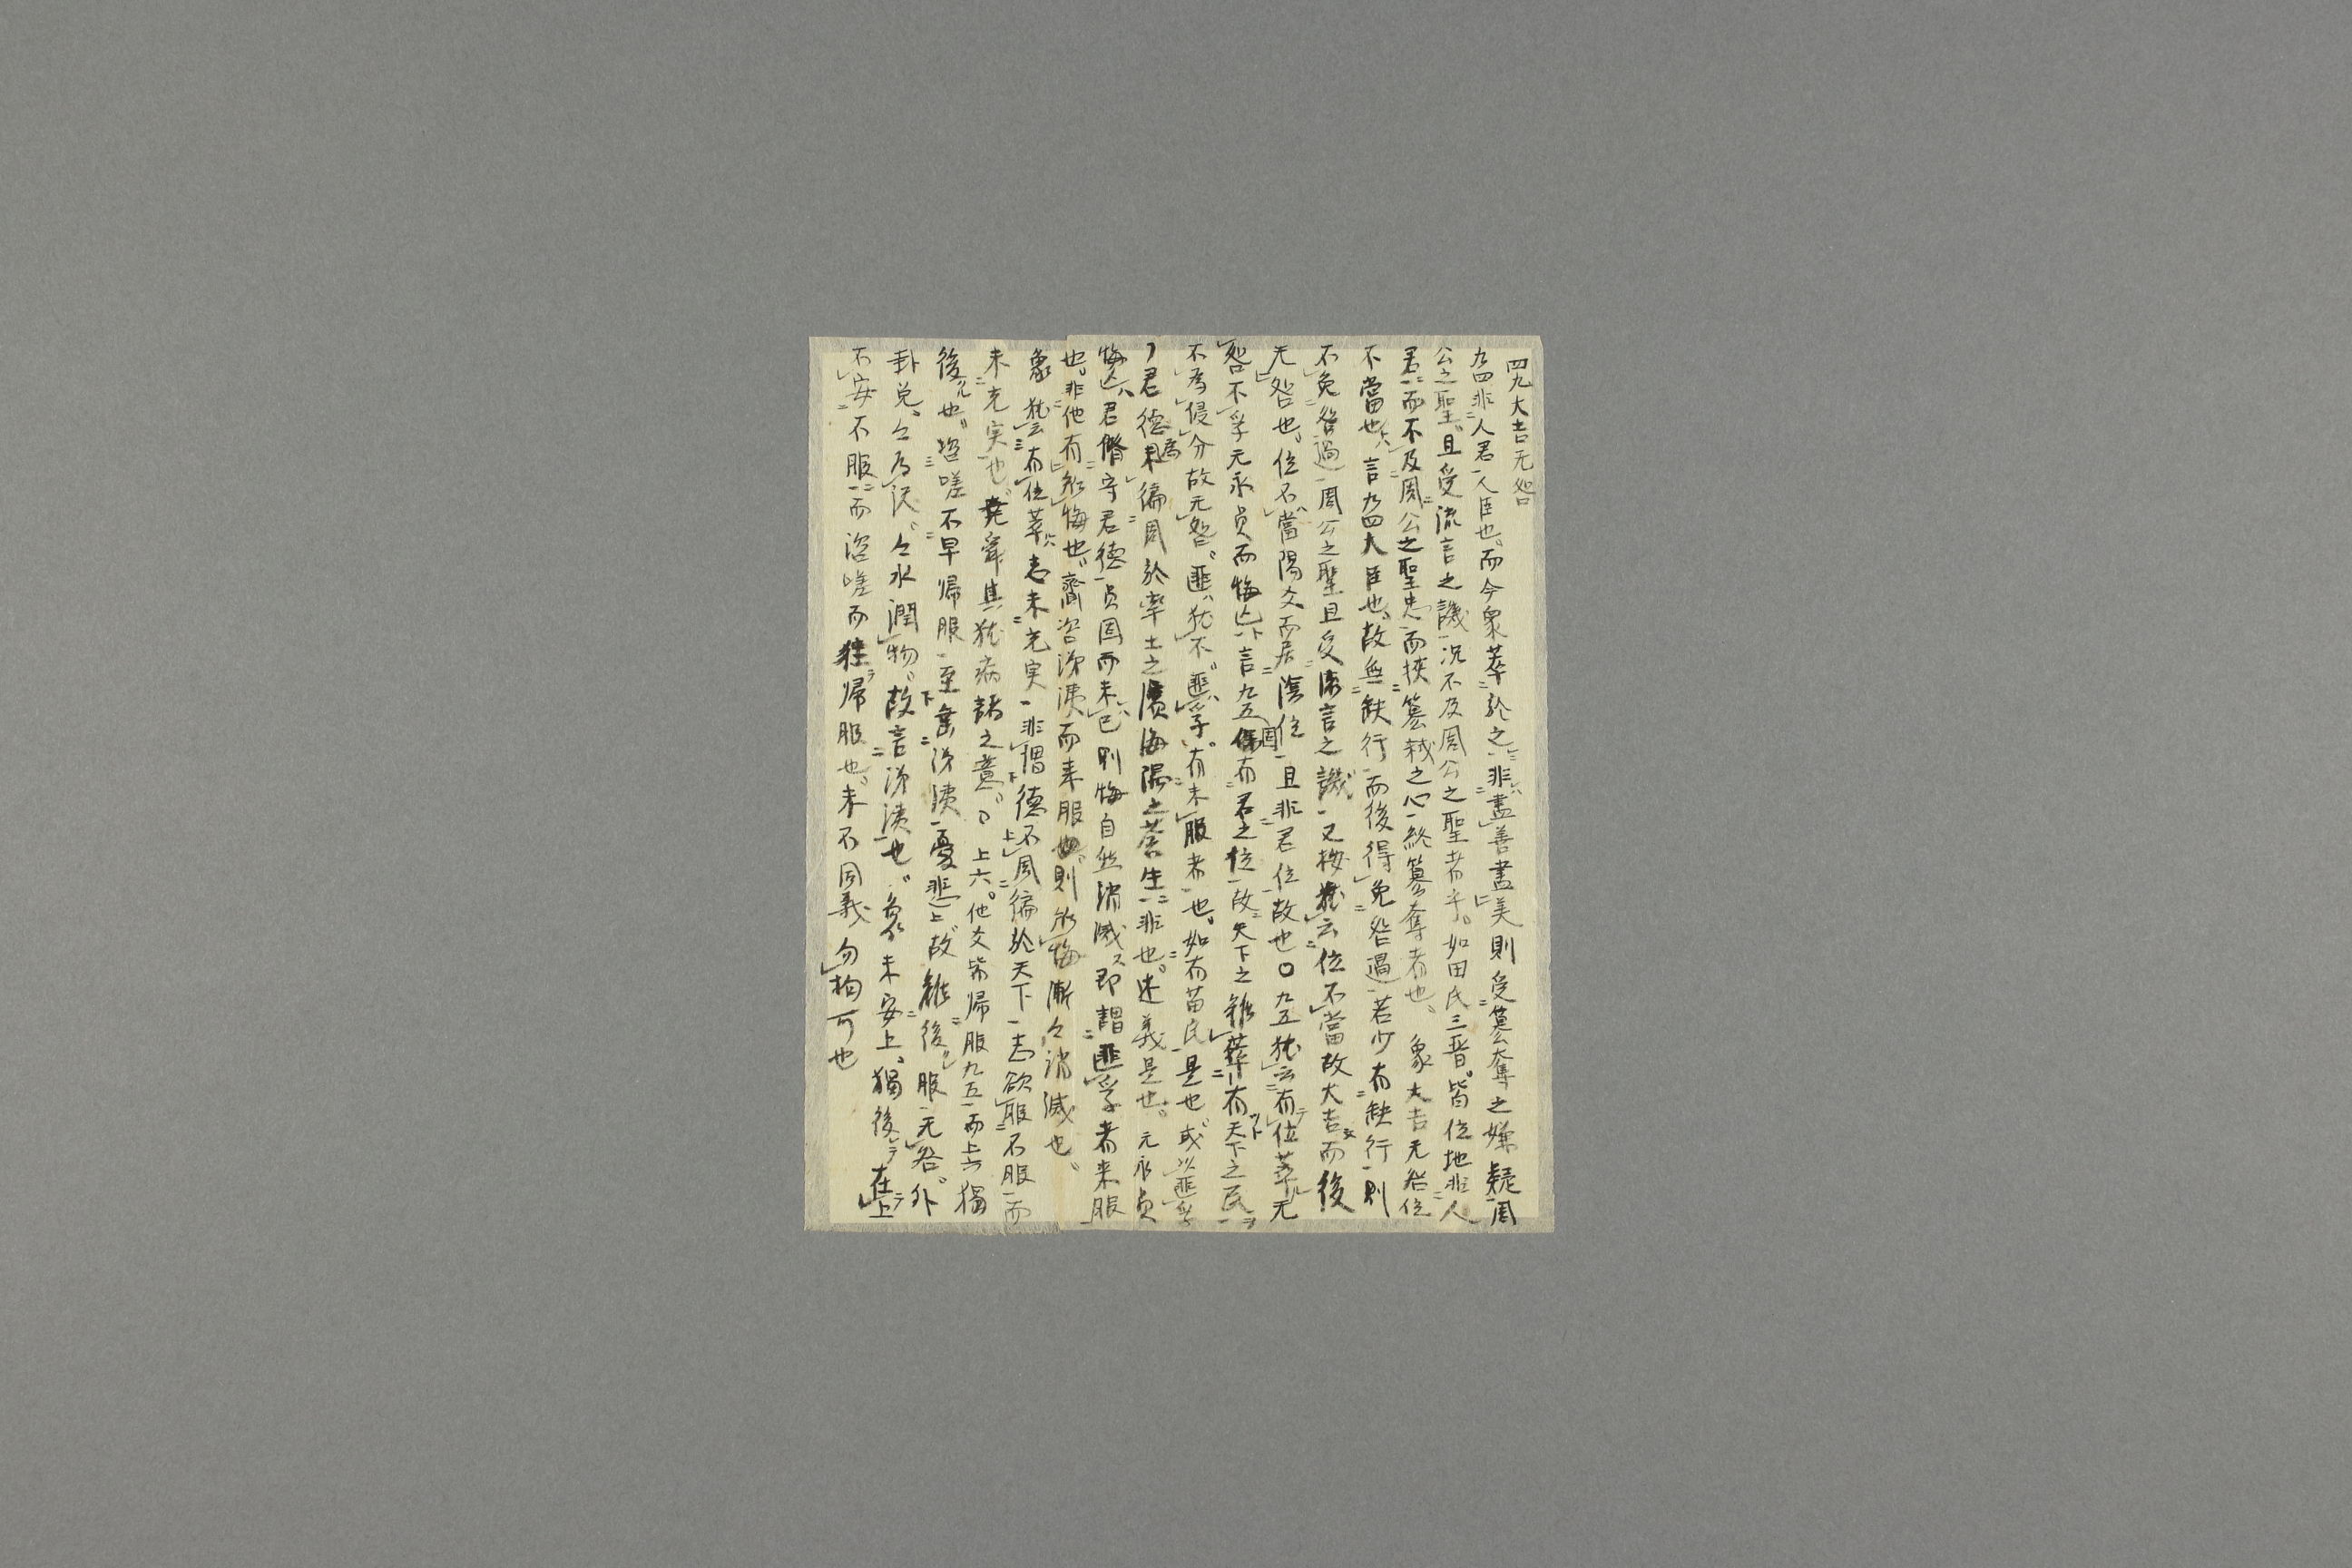 四九大吉无咎
九四非人君一人臣也而今衆萃於之非盡善盡美則受簒奪之嫌疑周
公之聖且受流言之譏況不及周公之聖者乎如田氏三晋皆位地非人
君而不及周公之聖忠而挾簒弑之心終簒奪者也 象大吉无咎位
不當也言九四人臣也故無缺行而後得免咎過若少有缺行則
不免咎過周公之聖且受流言之譏又按猶云位不當故大吉而後
无咎也位不當陽爻而居陰位且非君位故也〇九五猶云有位萃无
咎不孚元永貞而悔亡言九五有君之位故天下之雖萃有天下之民
不為侵分故无咎匪猶不匪孚有未服者也如有苗民是也或以匪孚
君德未徧周於率土之濱海隅之蒼生非也述義是也元永貞
悔亡君脩守君德貞固而未已則悔自然消滅即謂匪孚者来服
也非他有悔也齎咨涕洟而来服也則悔漸々消滅也
象猶云有位萃志未充実非謂德不周徧於天下志欲服不服而
未充実也堯舜其猶病諸之意〇上六他爻皆帰服九五而上六獨
後也咨嗟不早帰服至涕洟憂悲上故雖後服无咎外
卦兌々為沢々水潤物故言涕洟也象未安上獨後在上
不安不服而咨嗟而帰服也未不同義勿拘可也